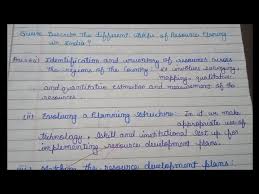 Ques:- Describe the different steps of Resource Planing
in India?
Ans:- (i) Identification and inventory of resources across
the regions of the Country: it involves surveying,
mapping, qualitative
and quantitative estimation and measurement of the
resources.
(ii) Evolving a planning structure: In it we make
appropriate use of
technology, skill and institutional set up for
implementing resource development plans.
the resource development plans: